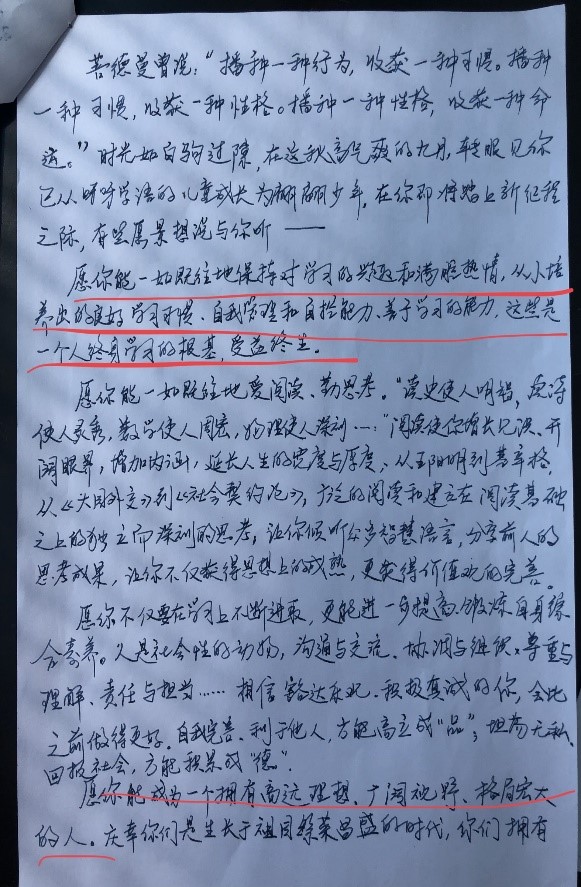 菩德曼曾说："播种一种行为，收获一种习惯。播种
一种习惯，收获一种性格。播种一种性格，收获一种命
运。"时光如白驹过隙，在这秋高气爽的九月，转眼见你
已从呀呀学语的儿童成长为翩翩少年，在你即将踏上新征程
之际，有些愿景想说与你听——
愿你能一如既往地保持对学习的兴趣和满腔热情，从小培
养出的良好学习习惯、自我管理和自控能力、善于学习的能力，这些是
一个人终身学习的根基，受益终生。
愿你能一如既往地爱阅读、勤思考。"读史使人明智，读诗
使人灵秀，数学使人周密，物理使人深刻……"阅读使你增长见识、开
阔眼界，增加内涵，延长人生的宽度与厚度，从王阳明到基辛格，
从《大国外交》到《社会契约论》，广泛的阅读和建立在阅读基础
之上的独立而深刻的思考，让你倾听众多智慧语言，分享前人的
思考成果，让你不仅获得思想上的成熟，更获得价值观的完善。
愿你不仅要在学习上不断进取，更能进一步提高、锻炼自身综
合素养。人是社会性的动物，沟通与交流、协调与组织、尊重与
理解、责任与担当……相信豁达乐观、积极真诚的你，会比
之前做得更好。自我完善、利于他人，方能高立成"品"；坦荡无私、
回报社会，方能积累成"德"。
愿你能成为一个拥有高远理想、广阔视野、格局宏大
的人。庆幸你们是生长于祖国繁荣昌盛的时代，你们拥有